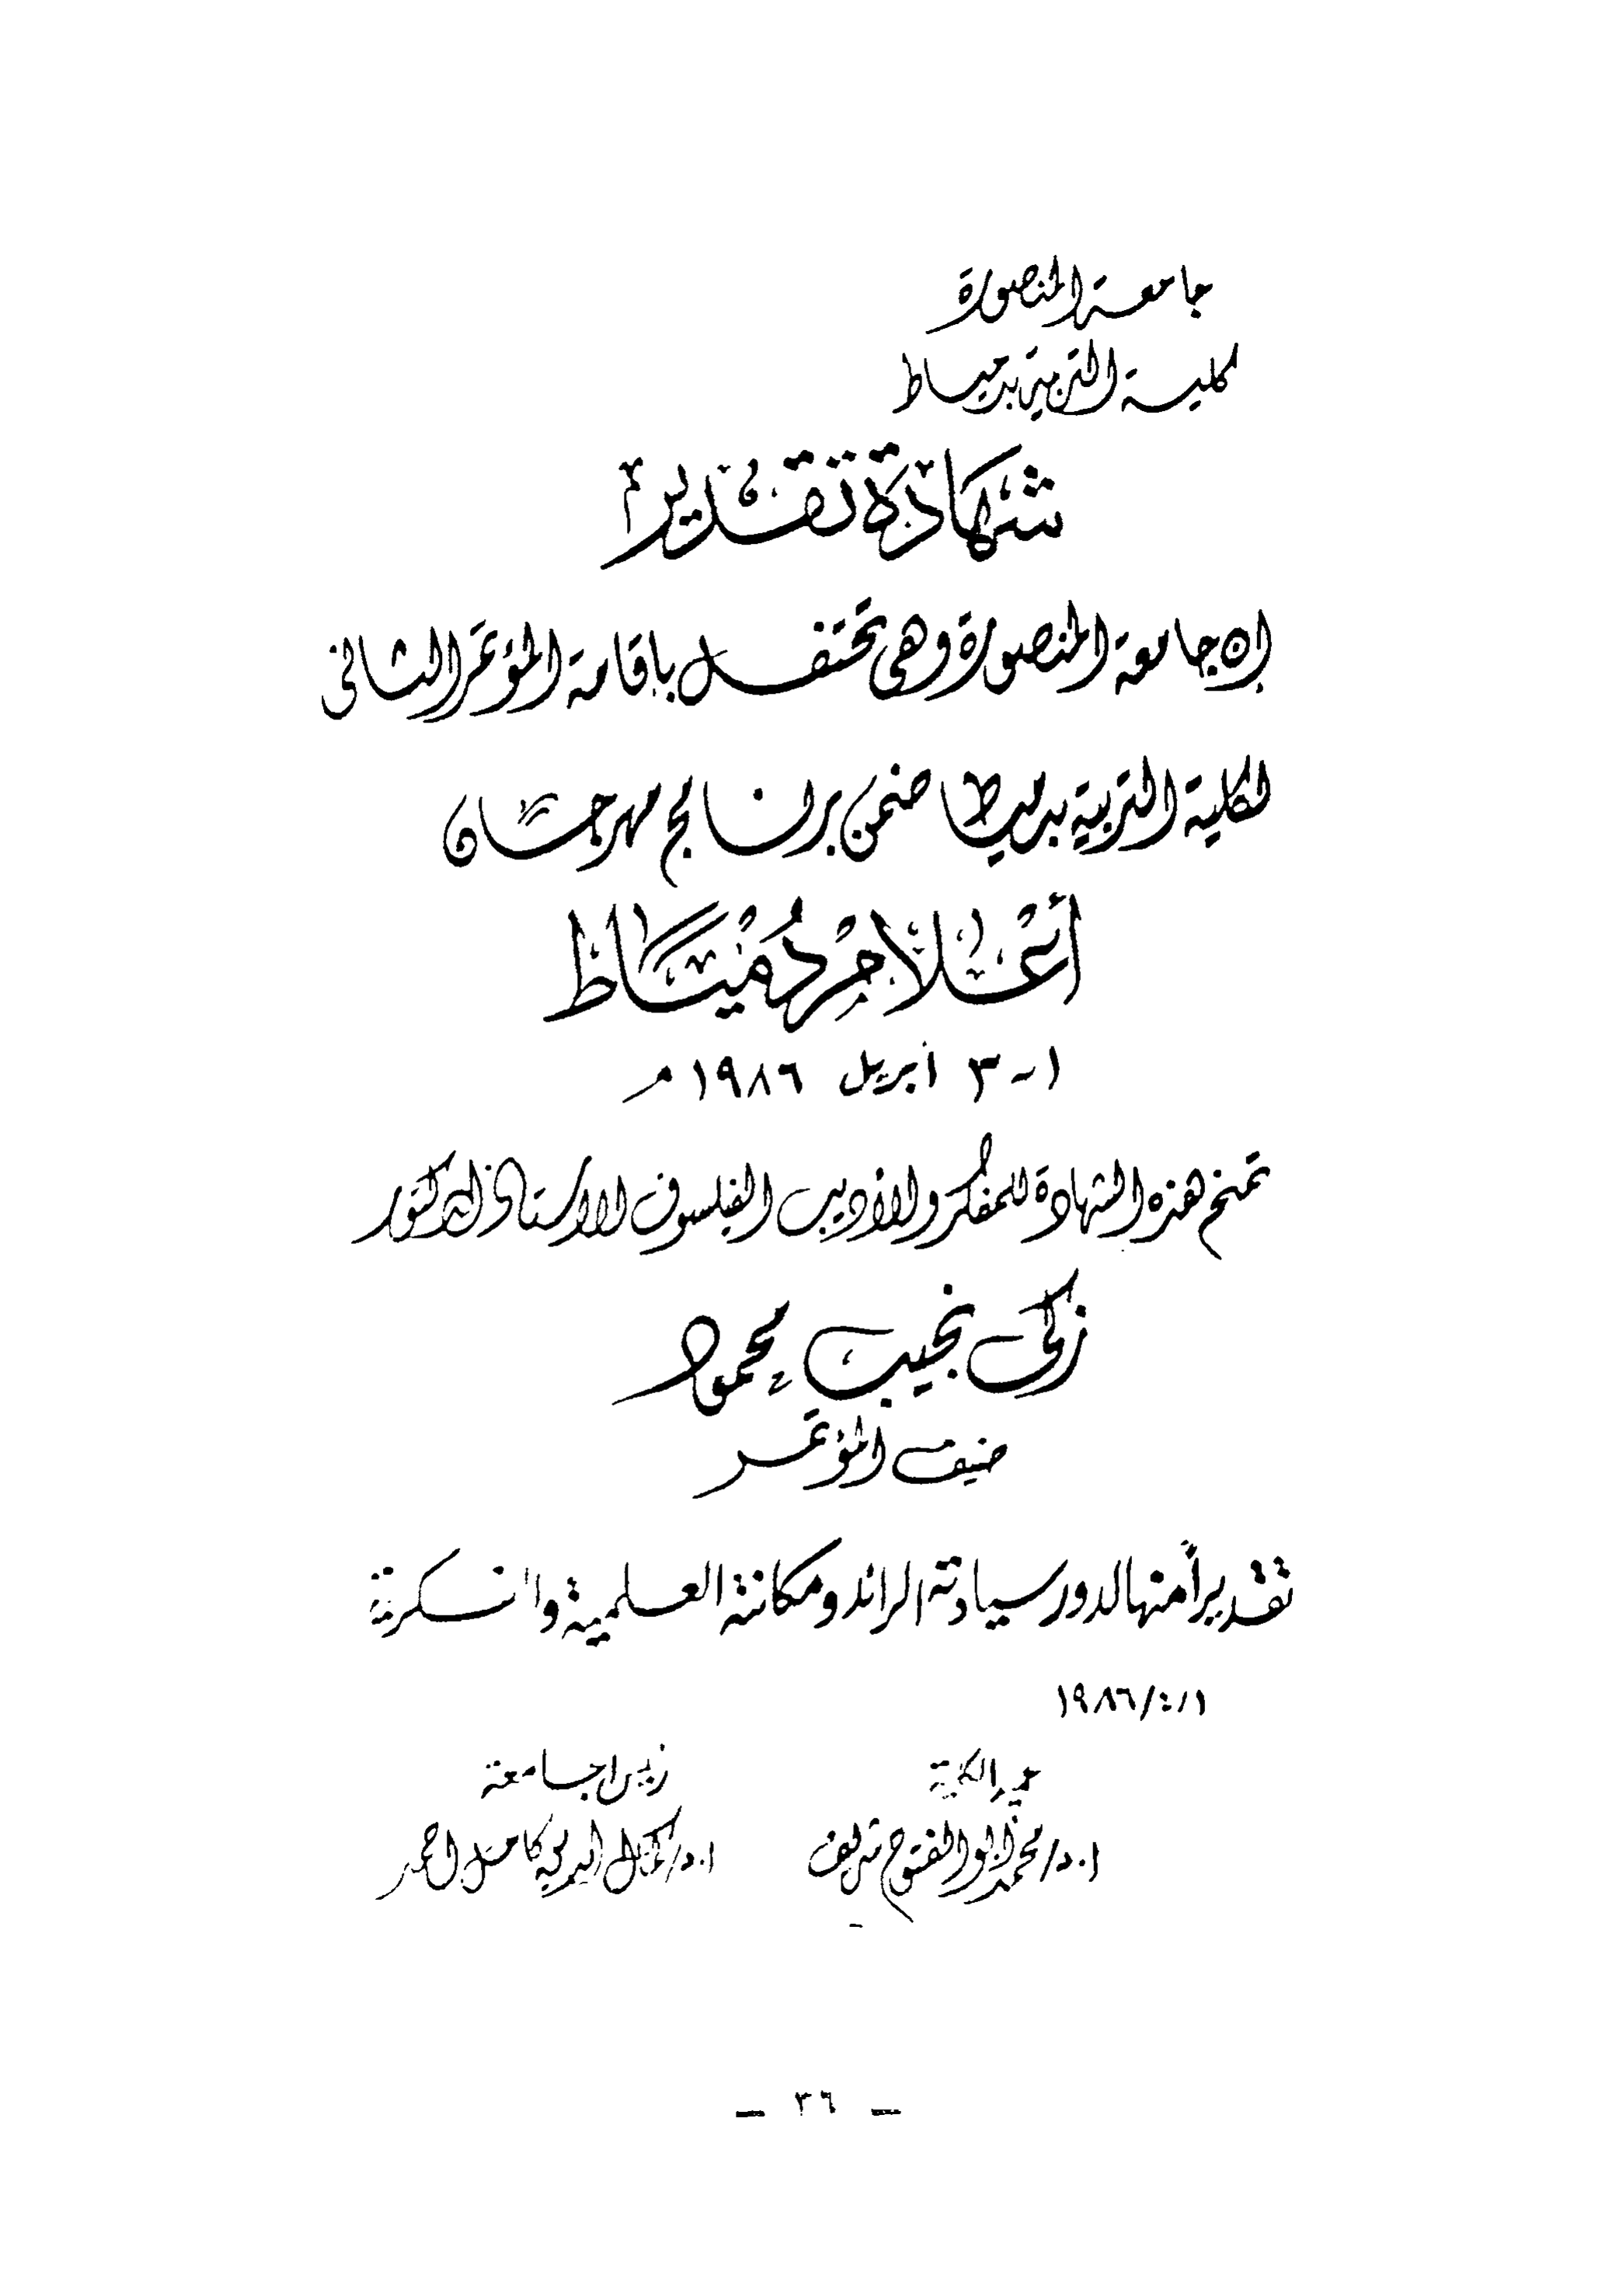 جامعة المنصورة
كلية التربية بدمياط
شهادة تقدير
إن جامعة المنصورة وهى تحتفل بإقامة المؤتمر الثانى
لكلية التربية بدمياط ضمن برنامج مهرجان
أعلام دمياط
١ - ٣ أبريل ١٩٨٦ م
تمنح هذه الشهادة للمفكر والأديب الفيلسوف الأستاذ الدكتور
زكى نجيب محمود
ضيف المؤتمر
تقديراً منها لدور سيادته الرائد ومكانته العلمية والفكرية
١/٤/١٩٨٦
عميد الكلية رئيس الجامعة
ا.د/ محمد أبو الفتوح شريف ا.د/ كمال الدين كامل أحمد
- ٣٦ -